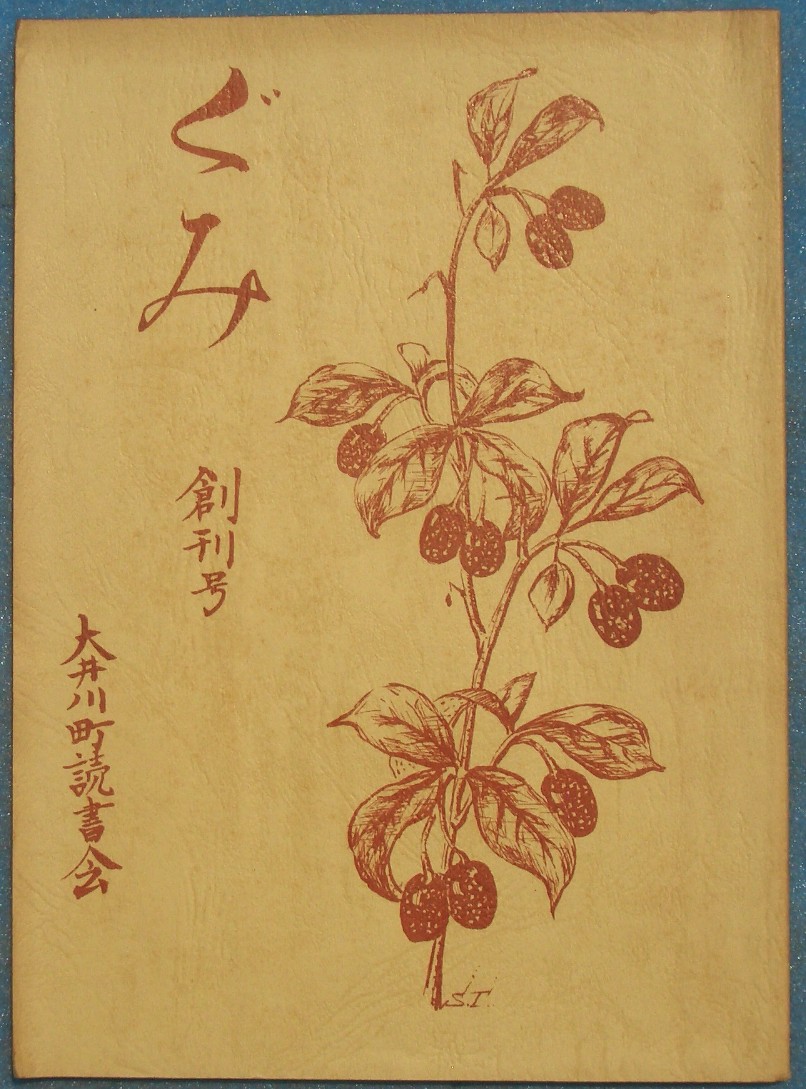 ぐみ
創刊号
大井川町読書会
S.T.